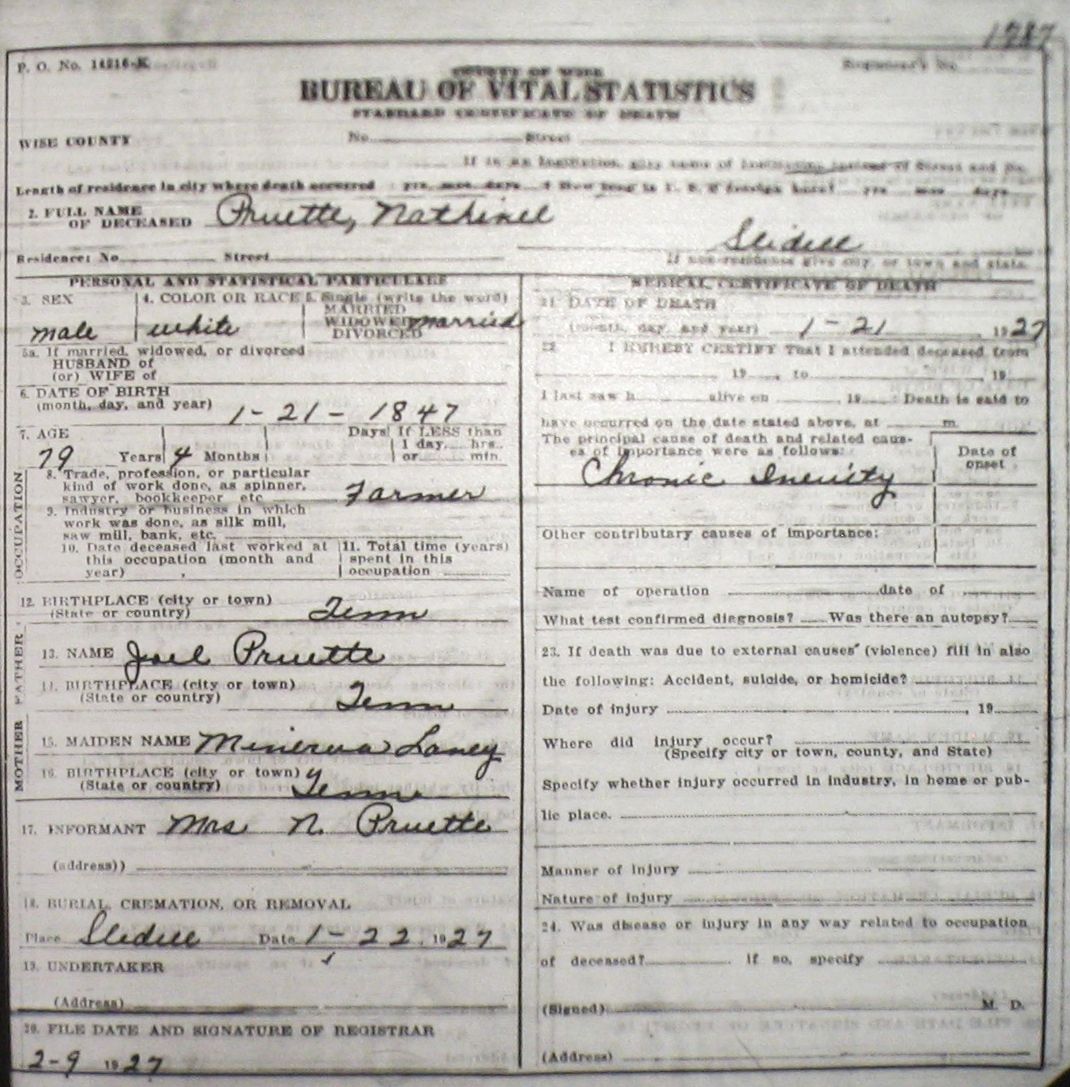 1787
P. O. No. 14216-K Registrar's No.
COUNTY OF WISE
BUREAU OF VITAL STATISTICS
STANDARD CERTIFICATE OF DEATH
WISE COUNTY No. Street
If in an Institution, give name of Institution, instead of Street and No.
Length of residence in city where death occurred yrs. mos. days. How long in U. S. if foreign born? yrs mos days
2. FULL NAME OF DECEASED Pruette, Nathinel
Residence: No. Street Slidell
If non-resident give city, or town and state.
PERSONAL AND STATISTICAL PARTICULARS
3. SEX 4. COLOR OR RACE 5. Single (write the word)
MARRIED
WIDOWED married
DIVORCED
male white
5a. If married, widowed, or divorced
HUSBAND of
(or) WIFE of
6. DATE OF BIRTH
(month, day, and year) 1-21-1847
7. AGE Days If LESS than
1 day, hrs.
79 Years 4 Months or min.
OCCUPATION
8. Trade, profession, or particular
kind of work done, as spinner,
sawyer, bookkeeper etc. Farmer
9. Industry or business in which
work was done, as silk mill,
saw mill, bank, etc.
10. Date deceased last worked at
this occupation (month and
year)
11. Total time (years)
spent in this
occupation
12. BIRTHPLACE (city or town)
(State or country) Tenn
FATHER
13. NAME Joel Pruette
14. BIRTHPLACE (city or town)
(State or country) Tenn
MOTHER
15. MAIDEN NAME Minerva Laney
16. BIRTHPLACE (city or town)
(State or country) Tenn
17. INFORMANT Mrs N. Pruette
(address))
18. BURIAL, CREMATION, OR REMOVAL
Place Slidell Date 1-22, 1927
19. UNDERTAKER
(Address)
20. FILE DATE AND SIGNATURE OF REGISTRAR
2-9 1927
MEDICAL CERTIFICATE OF DEATH
21. DATE OF DEATH
(month, day, and year) 1-21 1927
22. I HEREBY CERTIFY That I attended deceased from
19 , to 19
I last saw h alive on 19 : Death is said to
have occurred on the date stated above, at m.
The principal cause of death and related caus-
es of importance were as follows: Date of
onset
Chronic
Other contributary causes of importance:
Name of operation date of
What test confirmed diagnosis? Was there an autopsy?
23. If death was due to external causes (violence) fill in also
the following: Accident, suicide, or homicide?
Date of injury , 19
Where did injury occur?
(Specify city or town, county, and State)
Specify whether injury occurred in industry, in home or pub-
lic place.
Manner of injury
Nature of injury
24. Was disease or injury in any way related to occupation
of deceased? If so, specify
(Signed) M. D.
(Address)